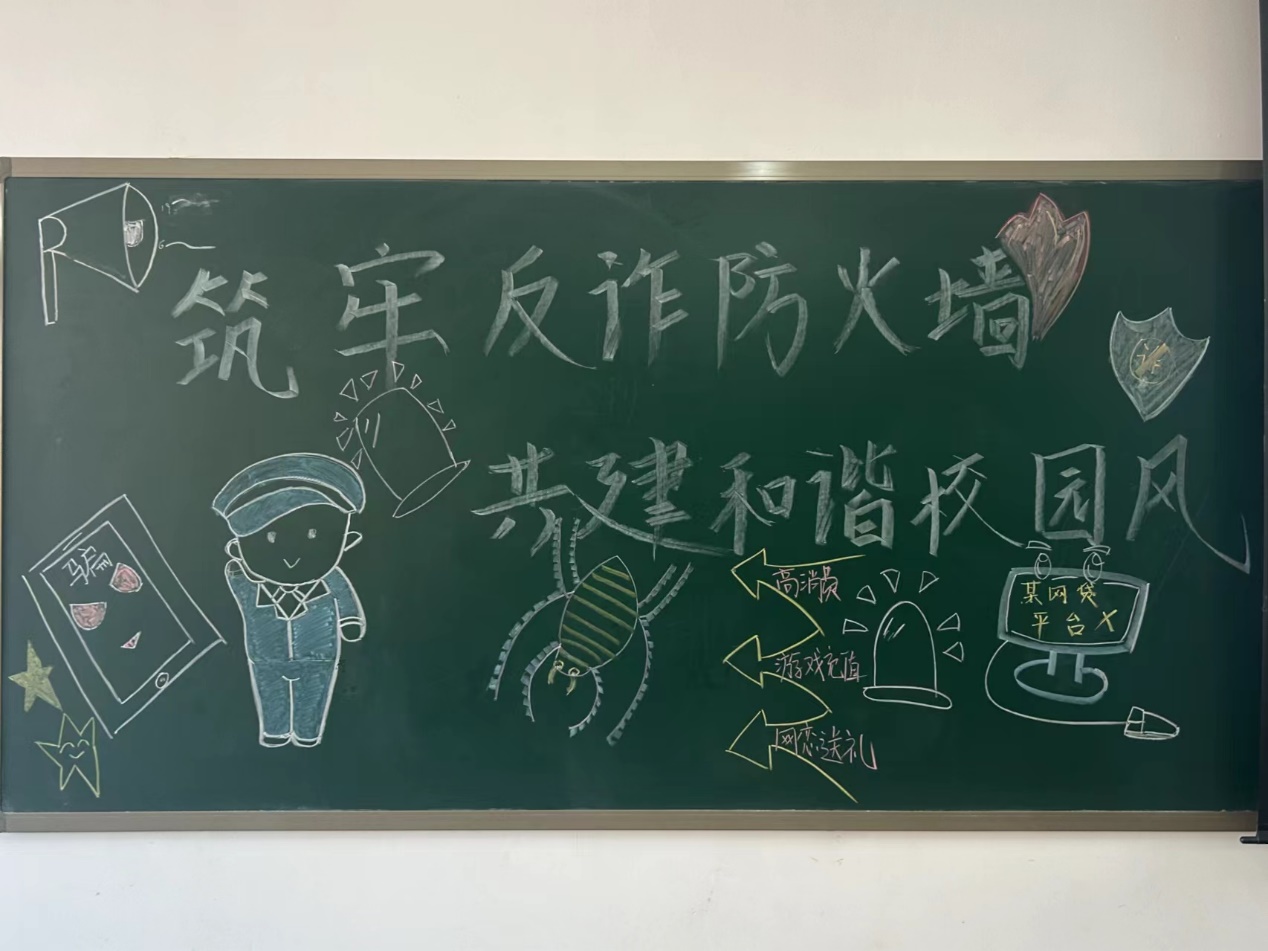 筑牢反诈防火墙
诈
共建和谐校园风
骗
高消费
游戏充值
网恋送礼
某网贷
平台 X